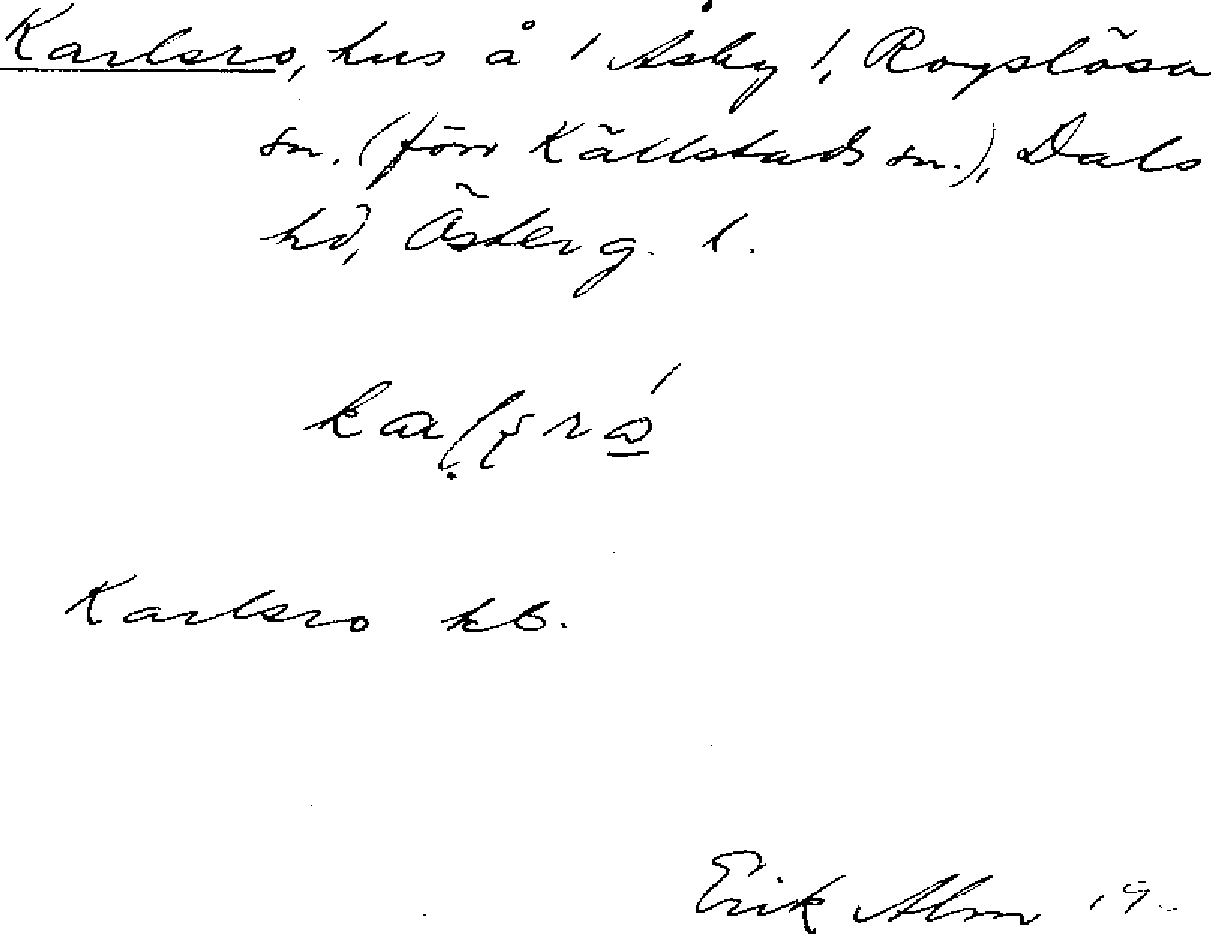 Karlsro, hus å 1 Asby 1, Rogslösa
sn. (förr Källstads sn.), Dals
hd, Österg. l.
Karlsro kb.
Erik Alm 19